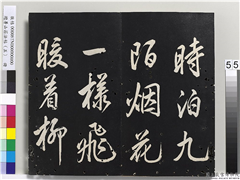 時泊九
陌烟花
一樣飛
暖着柳
55